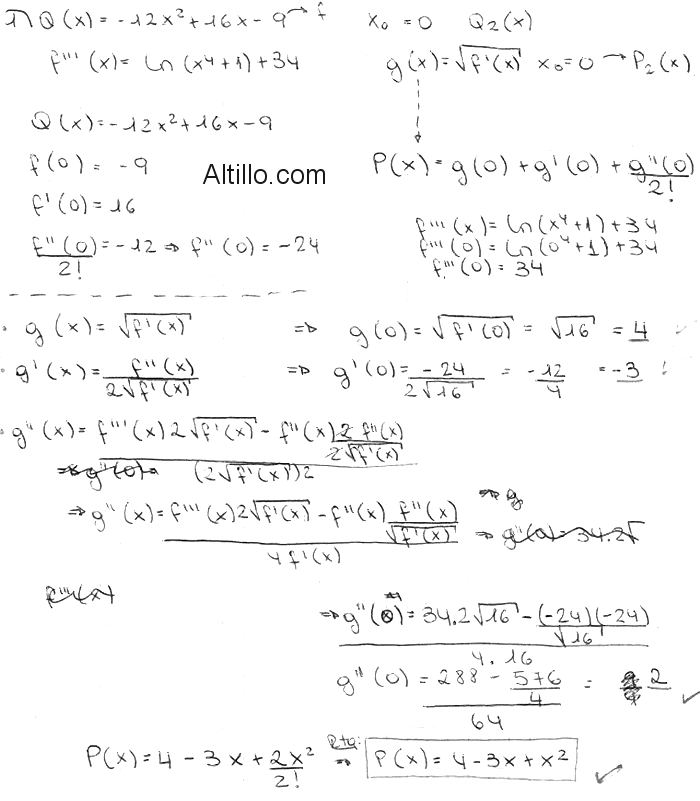 1) Q(x) = -12x² + 16x - 9 → f    x₀ = 0    Q₂(x)
f'''(x) = ln(x⁴+1) + 34    g(x) = √f'(x)    x₀ = 0 → P₂(x)
Q(x) = -12x² + 16x - 9
f(0) = -9
Altillo.com
P(x) = g(0) + g'(0) + g''(0)/2!
f'(0) = 16
f'''(x) = ln(x⁴+1) + 34
f''(0)/2! = -12 ⇒ f''(0) = -24
f'''(0) = ln(0⁴+1) + 34
f'''(0) = 34
• g(x) = √f'(x) ⇒ g(0) = √f'(0) = √16 = 4
• g'(x) = f''(x)/2√f'(x) ⇒ g'(0) = -24/2√16 = -12/4 = -3 !
• g''(x) = f'''(x) 2√f'(x) - f''(x) 2 f''(x)/2√f'(x)
⇒ g''(0) =    (2√f'(x))2
⇒ g
⇒ g''(x) = f'''(x) 2√f'(x) - f''(x) f''(x)/√f'(x) ⇒ g''(0) = 34.2√
4 f'(x)
f'''(x)
⇒ g''(0) = 34.2√16 - (-24)(-24)/√16
4.16
g''(0) = 288 - 576/4 = 2 ✓
64
P(x) = 4 - 3x + 2x²/2! ⇒ Rta: P(x) = 4 - 3x + x² ✓